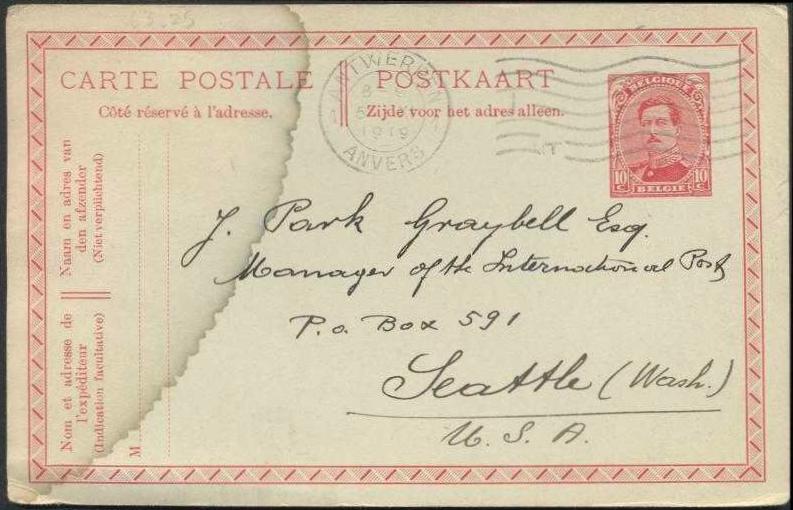 63.25
CARTE POSTALE
POSTKAART
Côté réservé à l'adresse.
Zijde voor het adres alleen.
ANTWERPEN
1919
ANVERS
BELGIQUE
10 C
10 C
BELGIË
Naam en adres van
den afzender
(Niet verplichtend)
Nom et adresse de
l'expéditeur
(Indication facultative)
M
J. Park Graybell Esq.
Manager of the International Post
P.o. Box 591
Seattle (Wash.)
U. S. A.